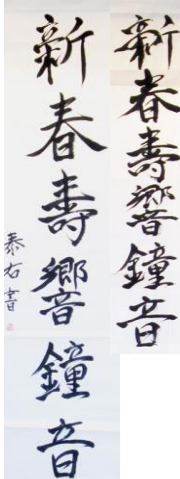 新春壽響鐘音
新春壽響鐘音
泰右書